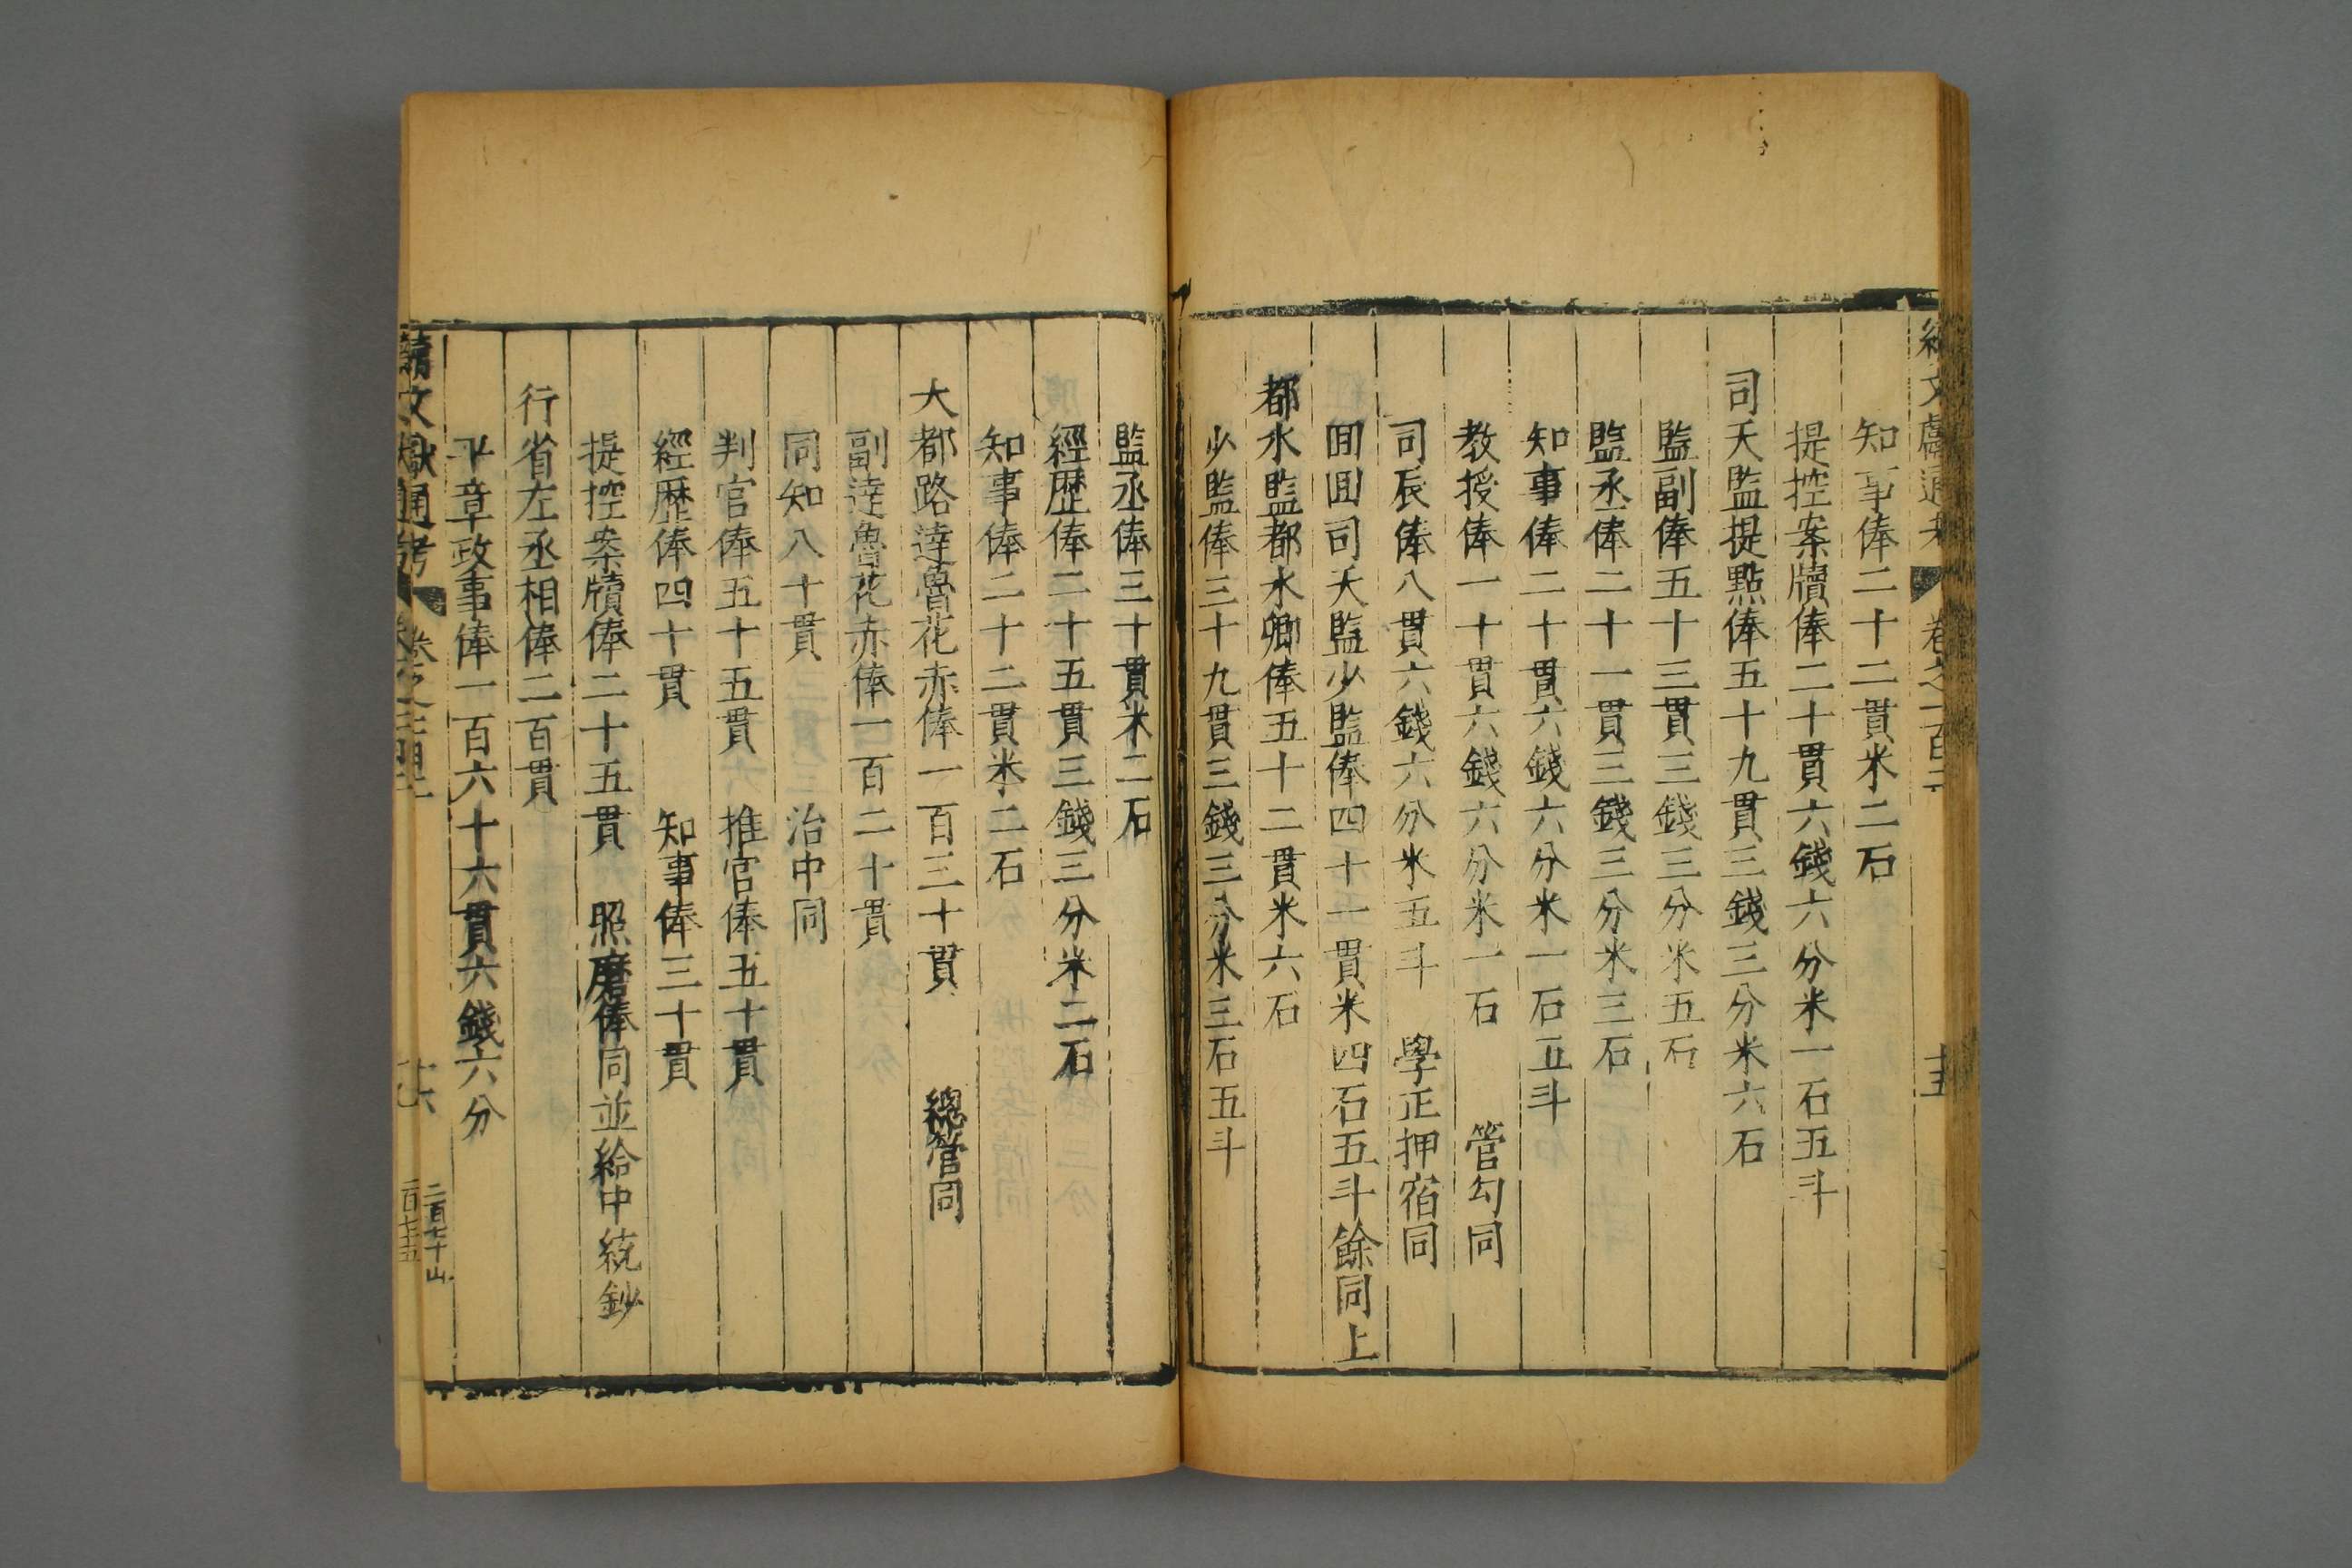 知事俸二十二貫米二石
提控案牘俸二十貫六錢六分米一石五斗
司天監提點俸五十九貫三錢三分米六石
監副俸五十三貫三錢三分米五石
監丞俸二十一貫三錢三分米三石
知事俸二十貫六錢六分米一石五斗
教授俸一十貫六錢六分米一石　管勾同
司辰俸八貫六錢六分米五斗　學正押宿同
囬囬司天監少監俸四十一貫米四石五斗餘同上
都水監都水卿俸五十二貫米六石
少監俸三十九貫三錢三分米三石五斗
監丞俸三十貫米二石
經歷俸二十五貫三錢三分米二石
知事俸二十二貫米二石
大都路達魯花赤俸一百三十貫　總管同
副達魯花赤俸一百二十貫
同知八十貫　治中同
判官俸五十五貫　推官俸五十貫
經歷俸四十貫　知事俸三十貫
提控案牘俸二十五貫　照磨俸同並給中統鈔
行省左丞相俸二百貫
平章政事俸一百六十六貫六錢六分
續文獻通考　卷之
十六
二百七十